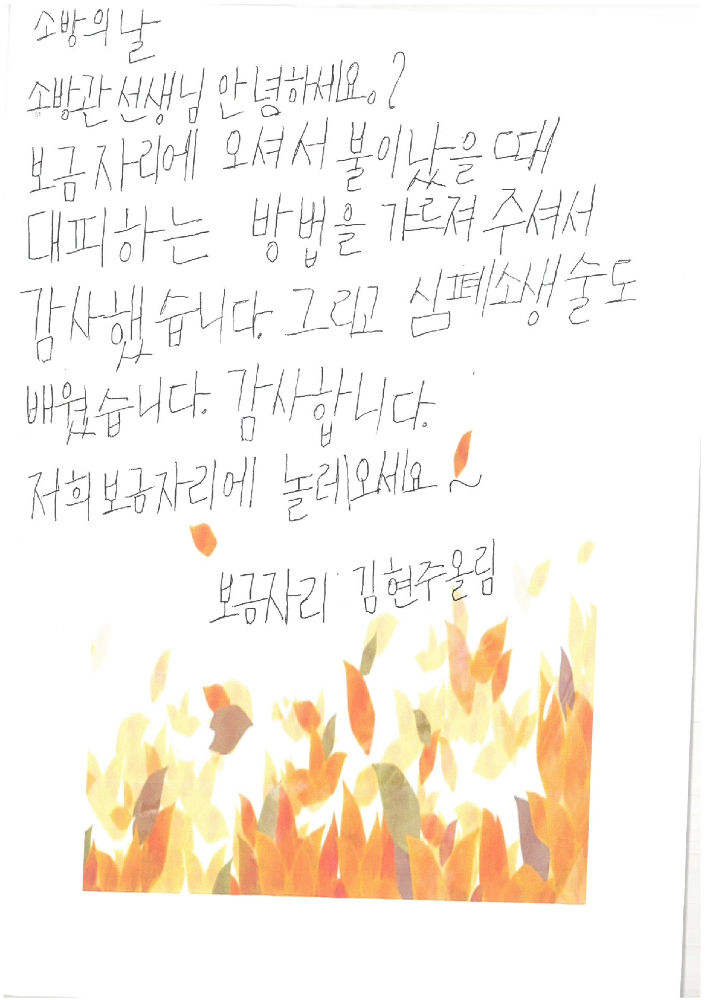 소방의날
소방관선생님 안녕하세요.?
보금자리에 오셔서 불이났을때
대피하는 방법을 가르져 주셔서
감사했습니다. 그리고 심폐소생술도
배웠습니다. 감사합니다.
저희보금자리에 놀레오세요~
보금자리 김현주올림